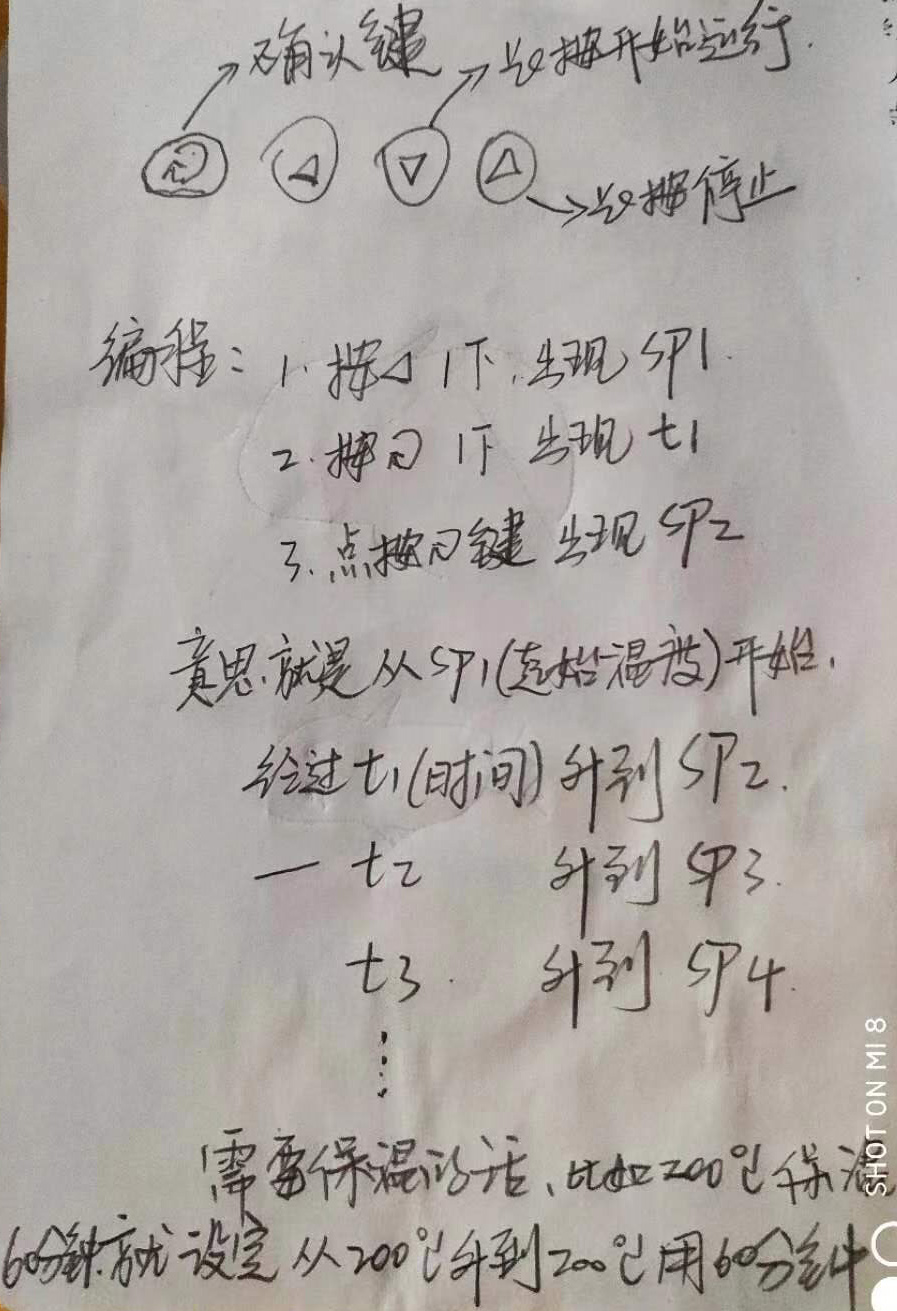 确认键 长按开始运行.
长按停止
编程: 1. 按◁ 1下, 出现 SP1.
2. 按↻ 1下 出现 t1
3. 点按↻键 出现 SP2
意思就是从SP1(起始温度)开始,
经过t1(时间) 升到 SP2.
一 t2 升到 SP3.
t3. 升到 SP4.
⋮
需要保温的话、比如200℃保温
60分钟.就设定 从200℃升到200℃用60分钟
SHOT ON MI 8